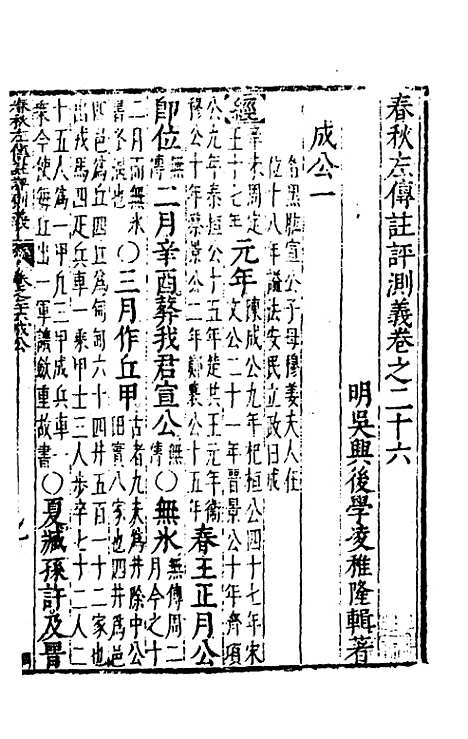 春秋左傳註評測義卷之二十六
明吳興後學凌稚隆輯著
成公一
名黑肱宣公子母穆姜夫人在
位十八年諡法安民立政曰成
經辛未周定王十七年元年文公二十一年晉景公十年齊頃
陳成公九年杞桓公四十七年宋
公元年秦桓公十五年楚共王元年衛
穆公十年蔡景公二年鄭襄公十五年春王正月公
即位無傳二月辛酉葬我君宣公無傳○無氷無傳周二月今之十
二月而無氷書冬溫也○三月作丘甲古者九夫為井除中公
田實八家也四井為邑
四邑為丘四丘為甸甸六十四井五百一十二家也
出戎馬四疋兵車一乘甲士三人步卒七十二人二
十五人為一甲凡三甲成兵車一
乘今使每丘出一軍譏斂重故書○夏臧孫許及晉
春秋左傳註評測義 卷之二十六 成公 一